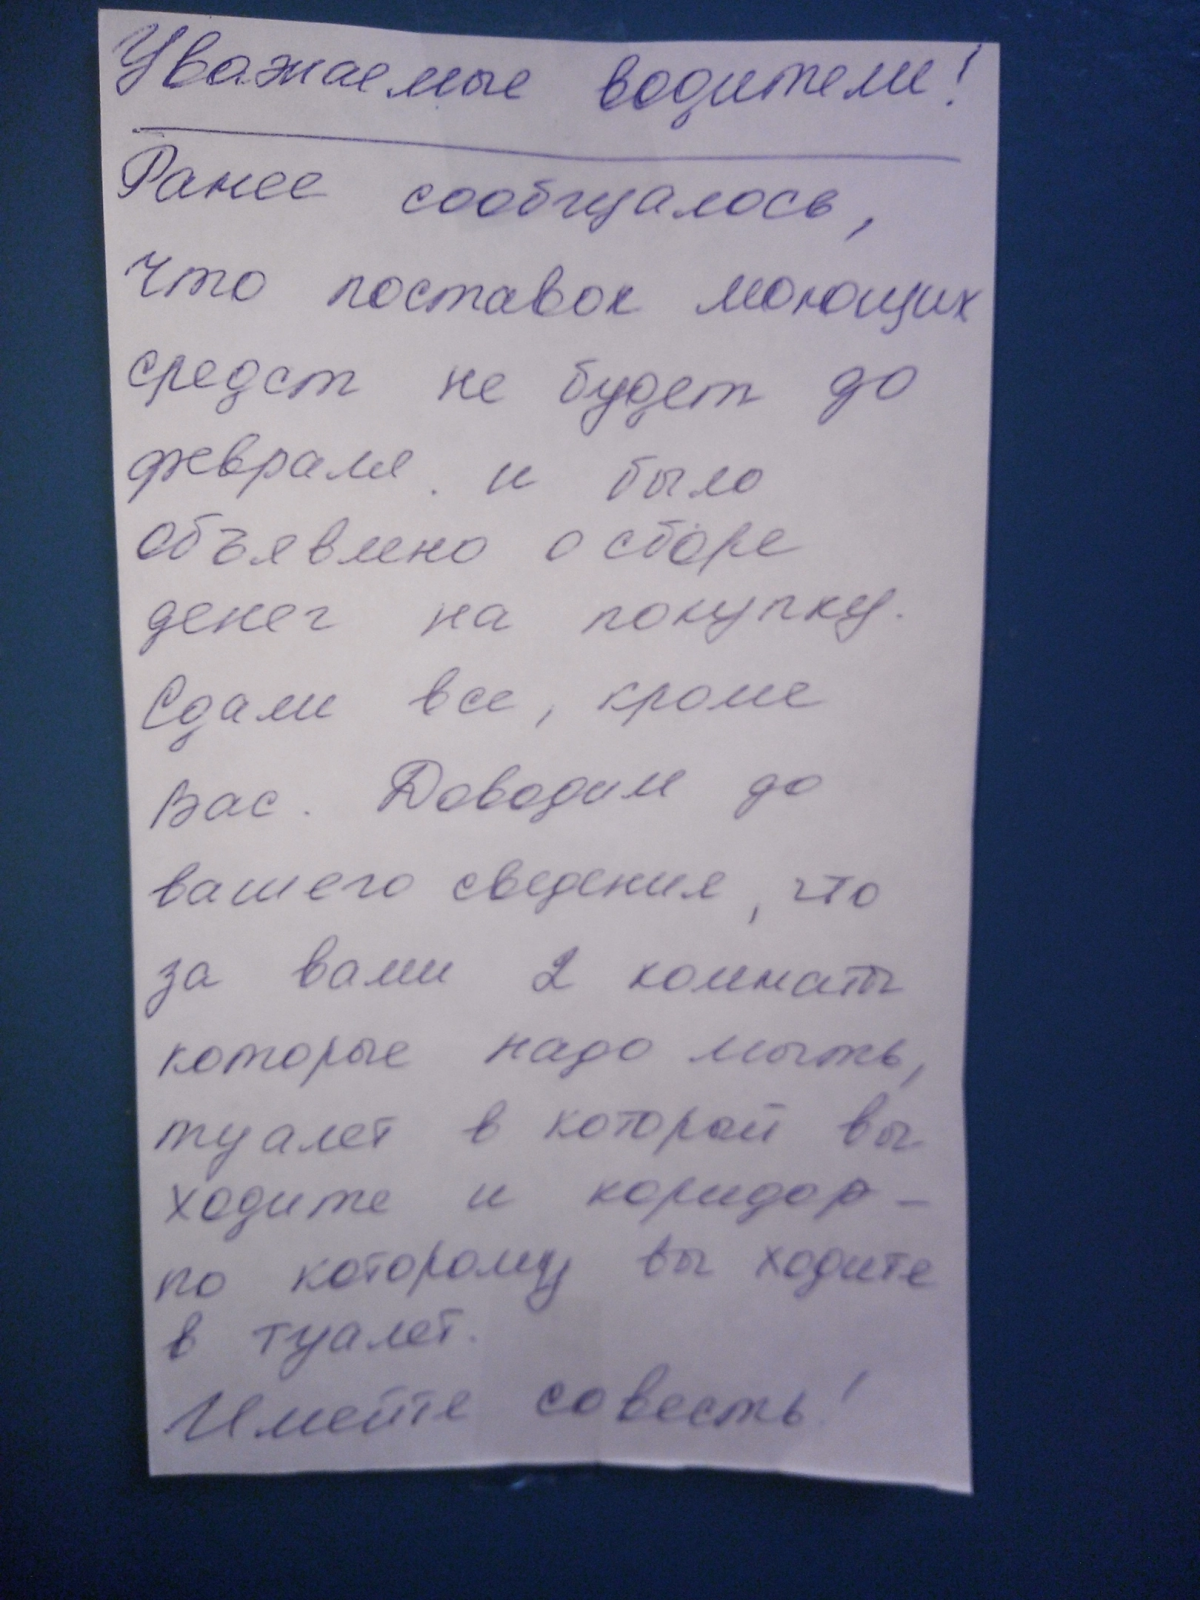 Уважаемые водители!
Ранее сообщалось,
что поставок моющих
средст не будет до
февраля. и было
объявлено о сборе
денег на покупку.
Сдали все, кроме
Вас. Доводим до
вашего сведения, что
за вами 2 комнаты
которые надо мыть,
туалет в который вы
ходите и коридор -
по которому вы ходите
в туалет.
Имейте совесть!